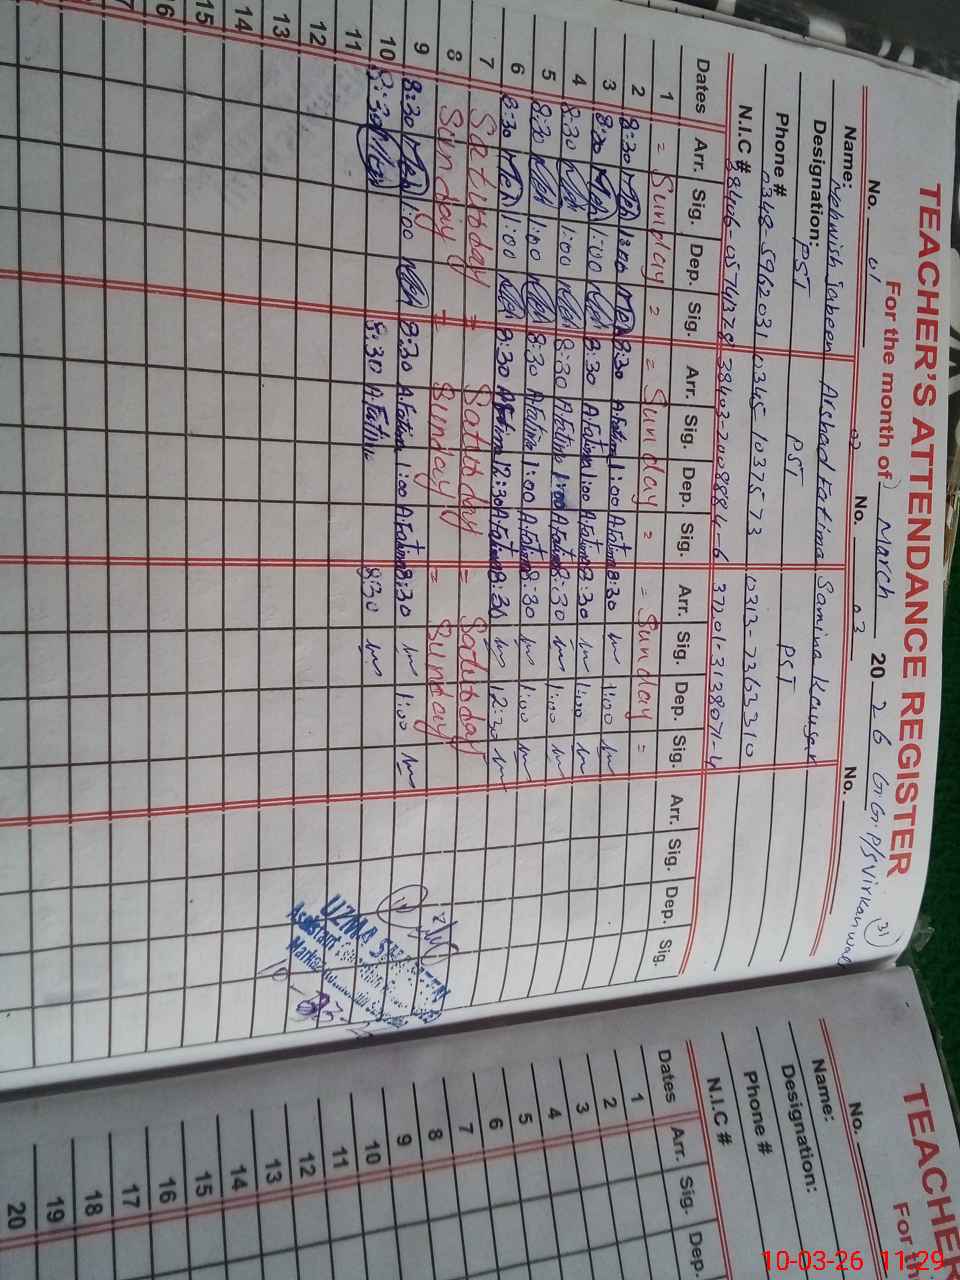 TEACHER'S ATTENDANCE REGISTER
For the month of March 2026 G.G.P/S Virkanwali (31)
No. 01 02 No. 03 No.
Name: Mehwish Jabeen Arshad Fatima Samina Kausar
Designation: PST PST PST
Phone # 0348-5962031 0345 1037573 0313-7363310
N.I.C # 38406-0574132-8 38403-2008884-6 37201-3138071-4
Dates Arr. Sig. Dep. Sig. Arr. Sig. Dep. Sig. Arr. Sig. Dep. Sig. Arr. Sig. Dep. Sig.
1 = Sunday = = Sunday = = Sunday =
2 8:30 Meh 1:00 Meh 8:30 A.Fatima 1:00 A.Fatima 8:30 1:00
3 8:30 Meh 1:00 Meh 8:30 A.Fatima 1:00 A.Fatima 8:30 1:00
4 8:30 Meh 1:00 Meh 8:30 A.Fatima 1:00 A.Fatima 8:30 1:00
5 8:30 Meh 1:00 Meh 8:30 A.Fatima 1:00 A.Fatima 8:30 1:00
6 8:30 Meh 1:00 Meh 8:30 A.Fatima 12:30 A.Fatima 8:30 12:30
7 Saturday = Saturday = Saturday
8 Sunday = Sunday = Sunday
9 8:30 Meh 1:00 Meh 8:30 A.Fatima 1:00 A.Fatima 8:30 1:00
10 8:30 Meh 8:30 A.Fatima 8:30
11
12
13
14
15
16
UZMA
Assistant
Markaz
TEACHE
For th
No.
Name:
Designation:
Phone #
N.I.C #
Dates Arr. Sig. Dep.
1
2
3
4
5
6
7
8
9
10
11
12
13
14
15
16
17
18
19
20
10-03-26 11:29